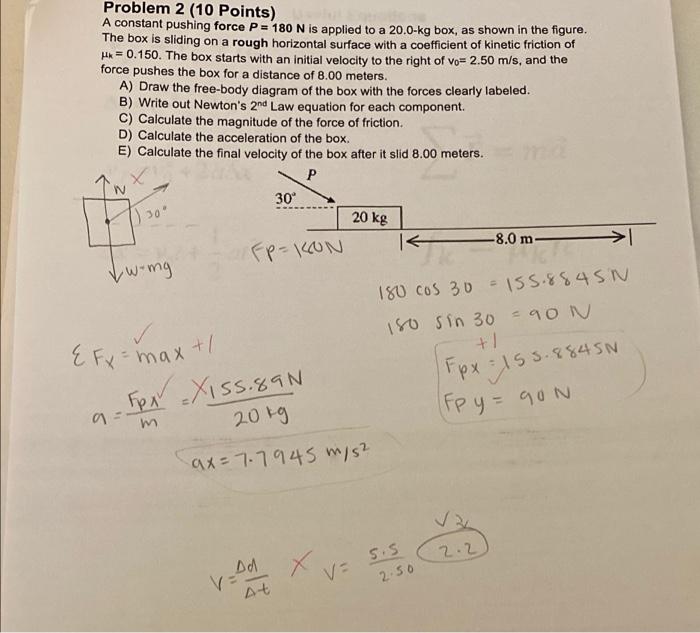 Problem 2 (10 Points)
A constant pushing force P = 180 N is applied to a 20.0-kg box, as shown in the figure.
The box is sliding on a rough horizontal surface with a coefficient of kinetic friction of
μk = 0.150. The box starts with an initial velocity to the right of v0= 2.50 m/s, and the
force pushes the box for a distance of 8.00 meters.
A) Draw the free-body diagram of the box with the forces clearly labeled.
B) Write out Newton's 2nd Law equation for each component.
C) Calculate the magnitude of the force of friction.
D) Calculate the acceleration of the box.
E) Calculate the final velocity of the box after it slid 8.00 meters.
P
N X
30°
30°
20 kg
8.0 m
W=mg
180 cos 30 = 155.8845N
180 sin 30 = 90 N
ΣFx = max +1
+1
Fpx = 155.8845N
Fpy = 90N
a = Fpx/m = X 155.89N/20kg
ax = 7.7945 m/s²
V = Δd/Δt X V = 5.5/2.50 2.2